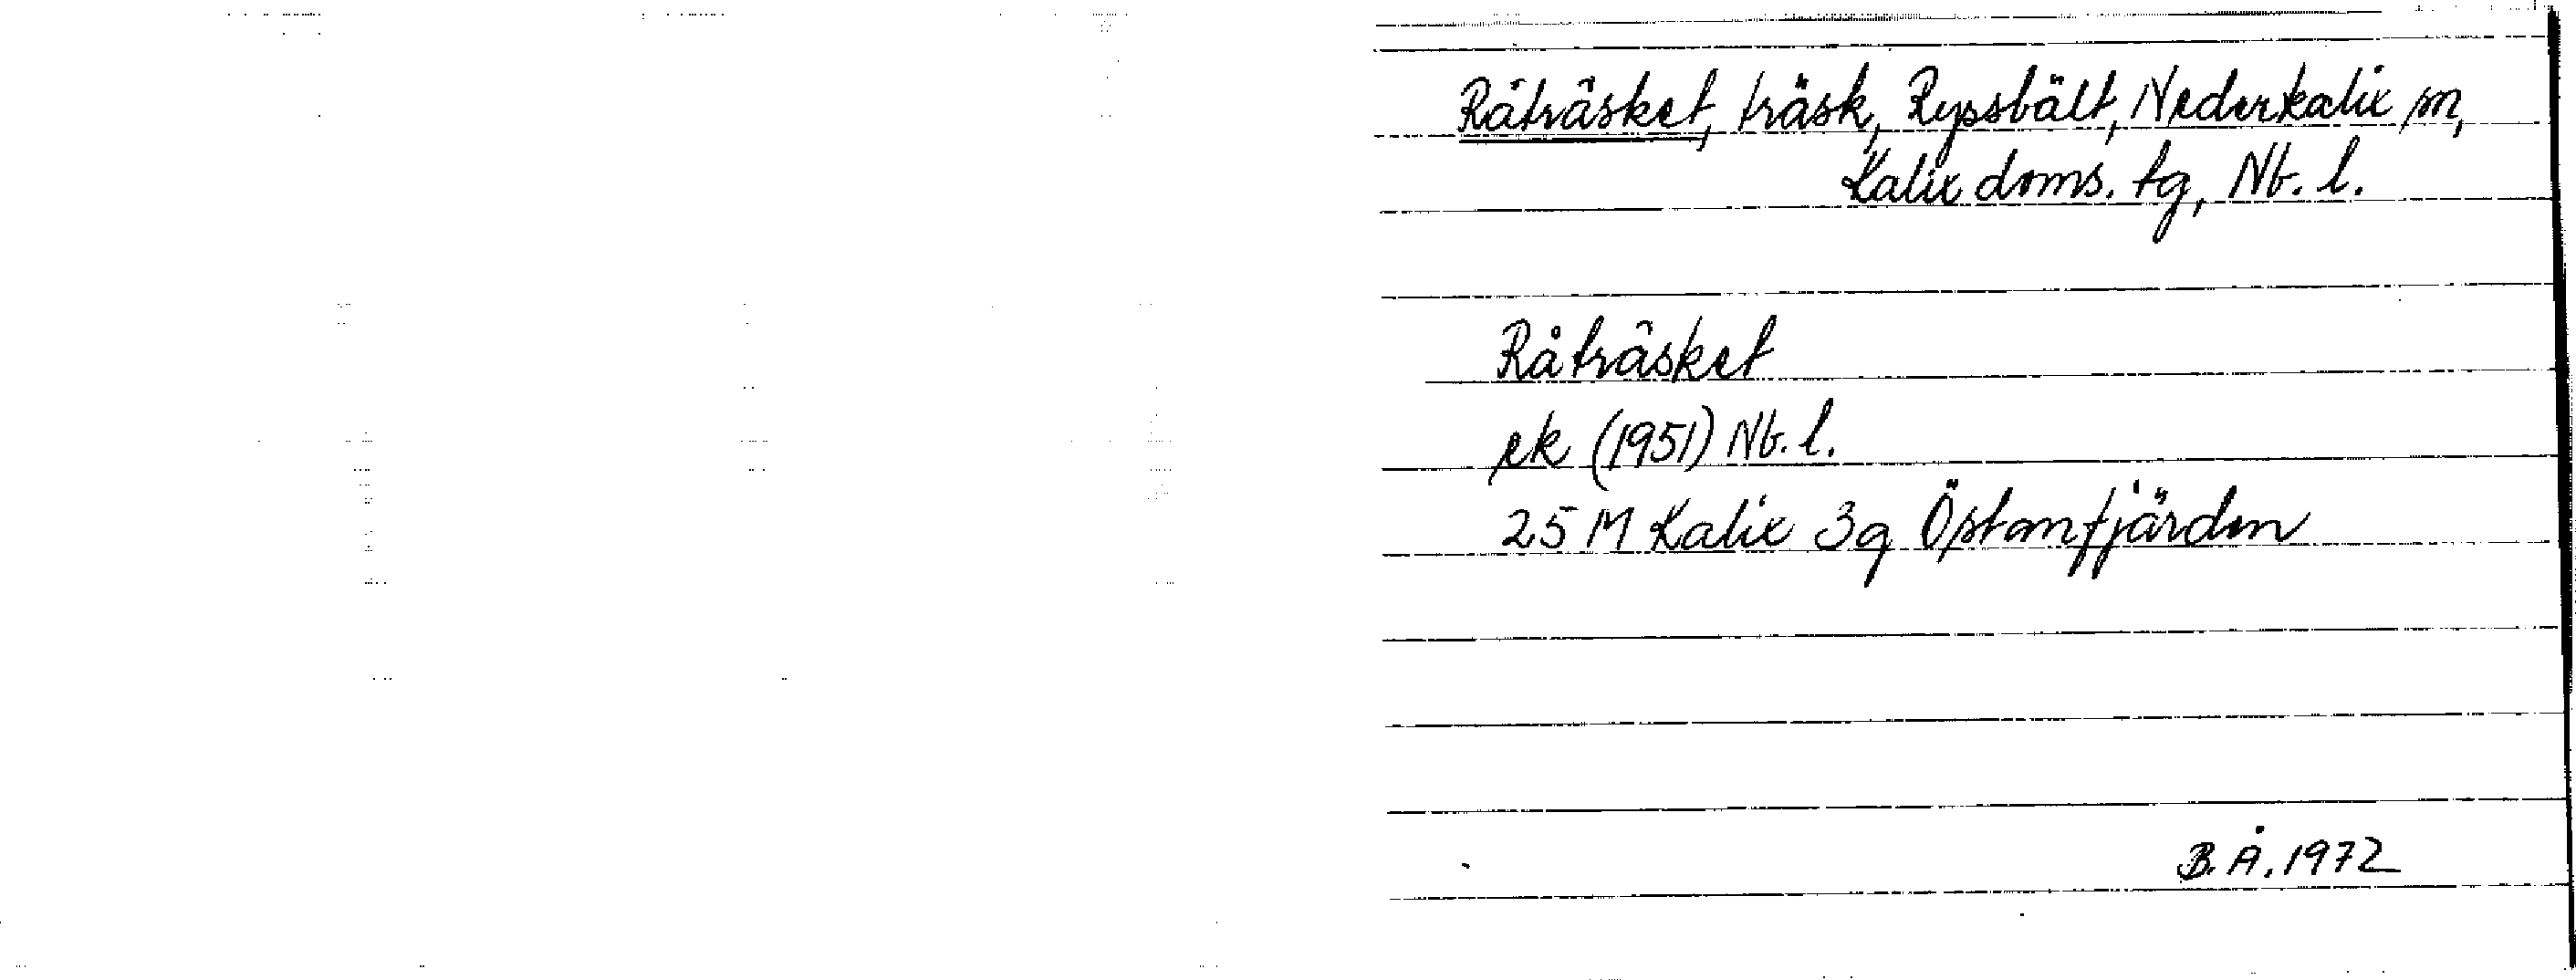 Råträsket, träsk, Ryssbält, Nederkalix sn,
Kalix doms. tg, Nb. l.
Råträsket
ek (1951) Nb. l.
25 M Kalix 3g Östanfjärden
B.Å. 1972